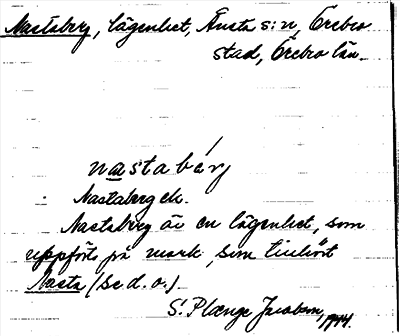 Nastaberg, lägenhet, Ånsta s:n, Örebro
stad, Örebro län.
nastabärj
Nastaberg etc.
Nastaberg är en lägenhet, som
uppförts på mark, som tillhört
Nasta (se d. o.).
S. Plænge Jacobson, 1944.